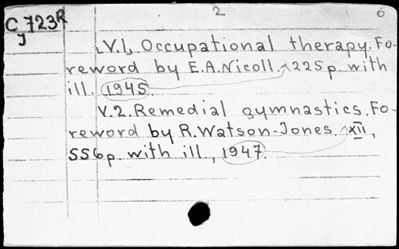 C 723R 2 6
J
V.1. Occupational therapy. Fo-
reword by E.A. Nicoll. 225 p. with
ill. 1945
V.2. Remedial gymnastics. Fo-
reword by R. Watson-Jones. XII,
556 p. with ill., 1947.